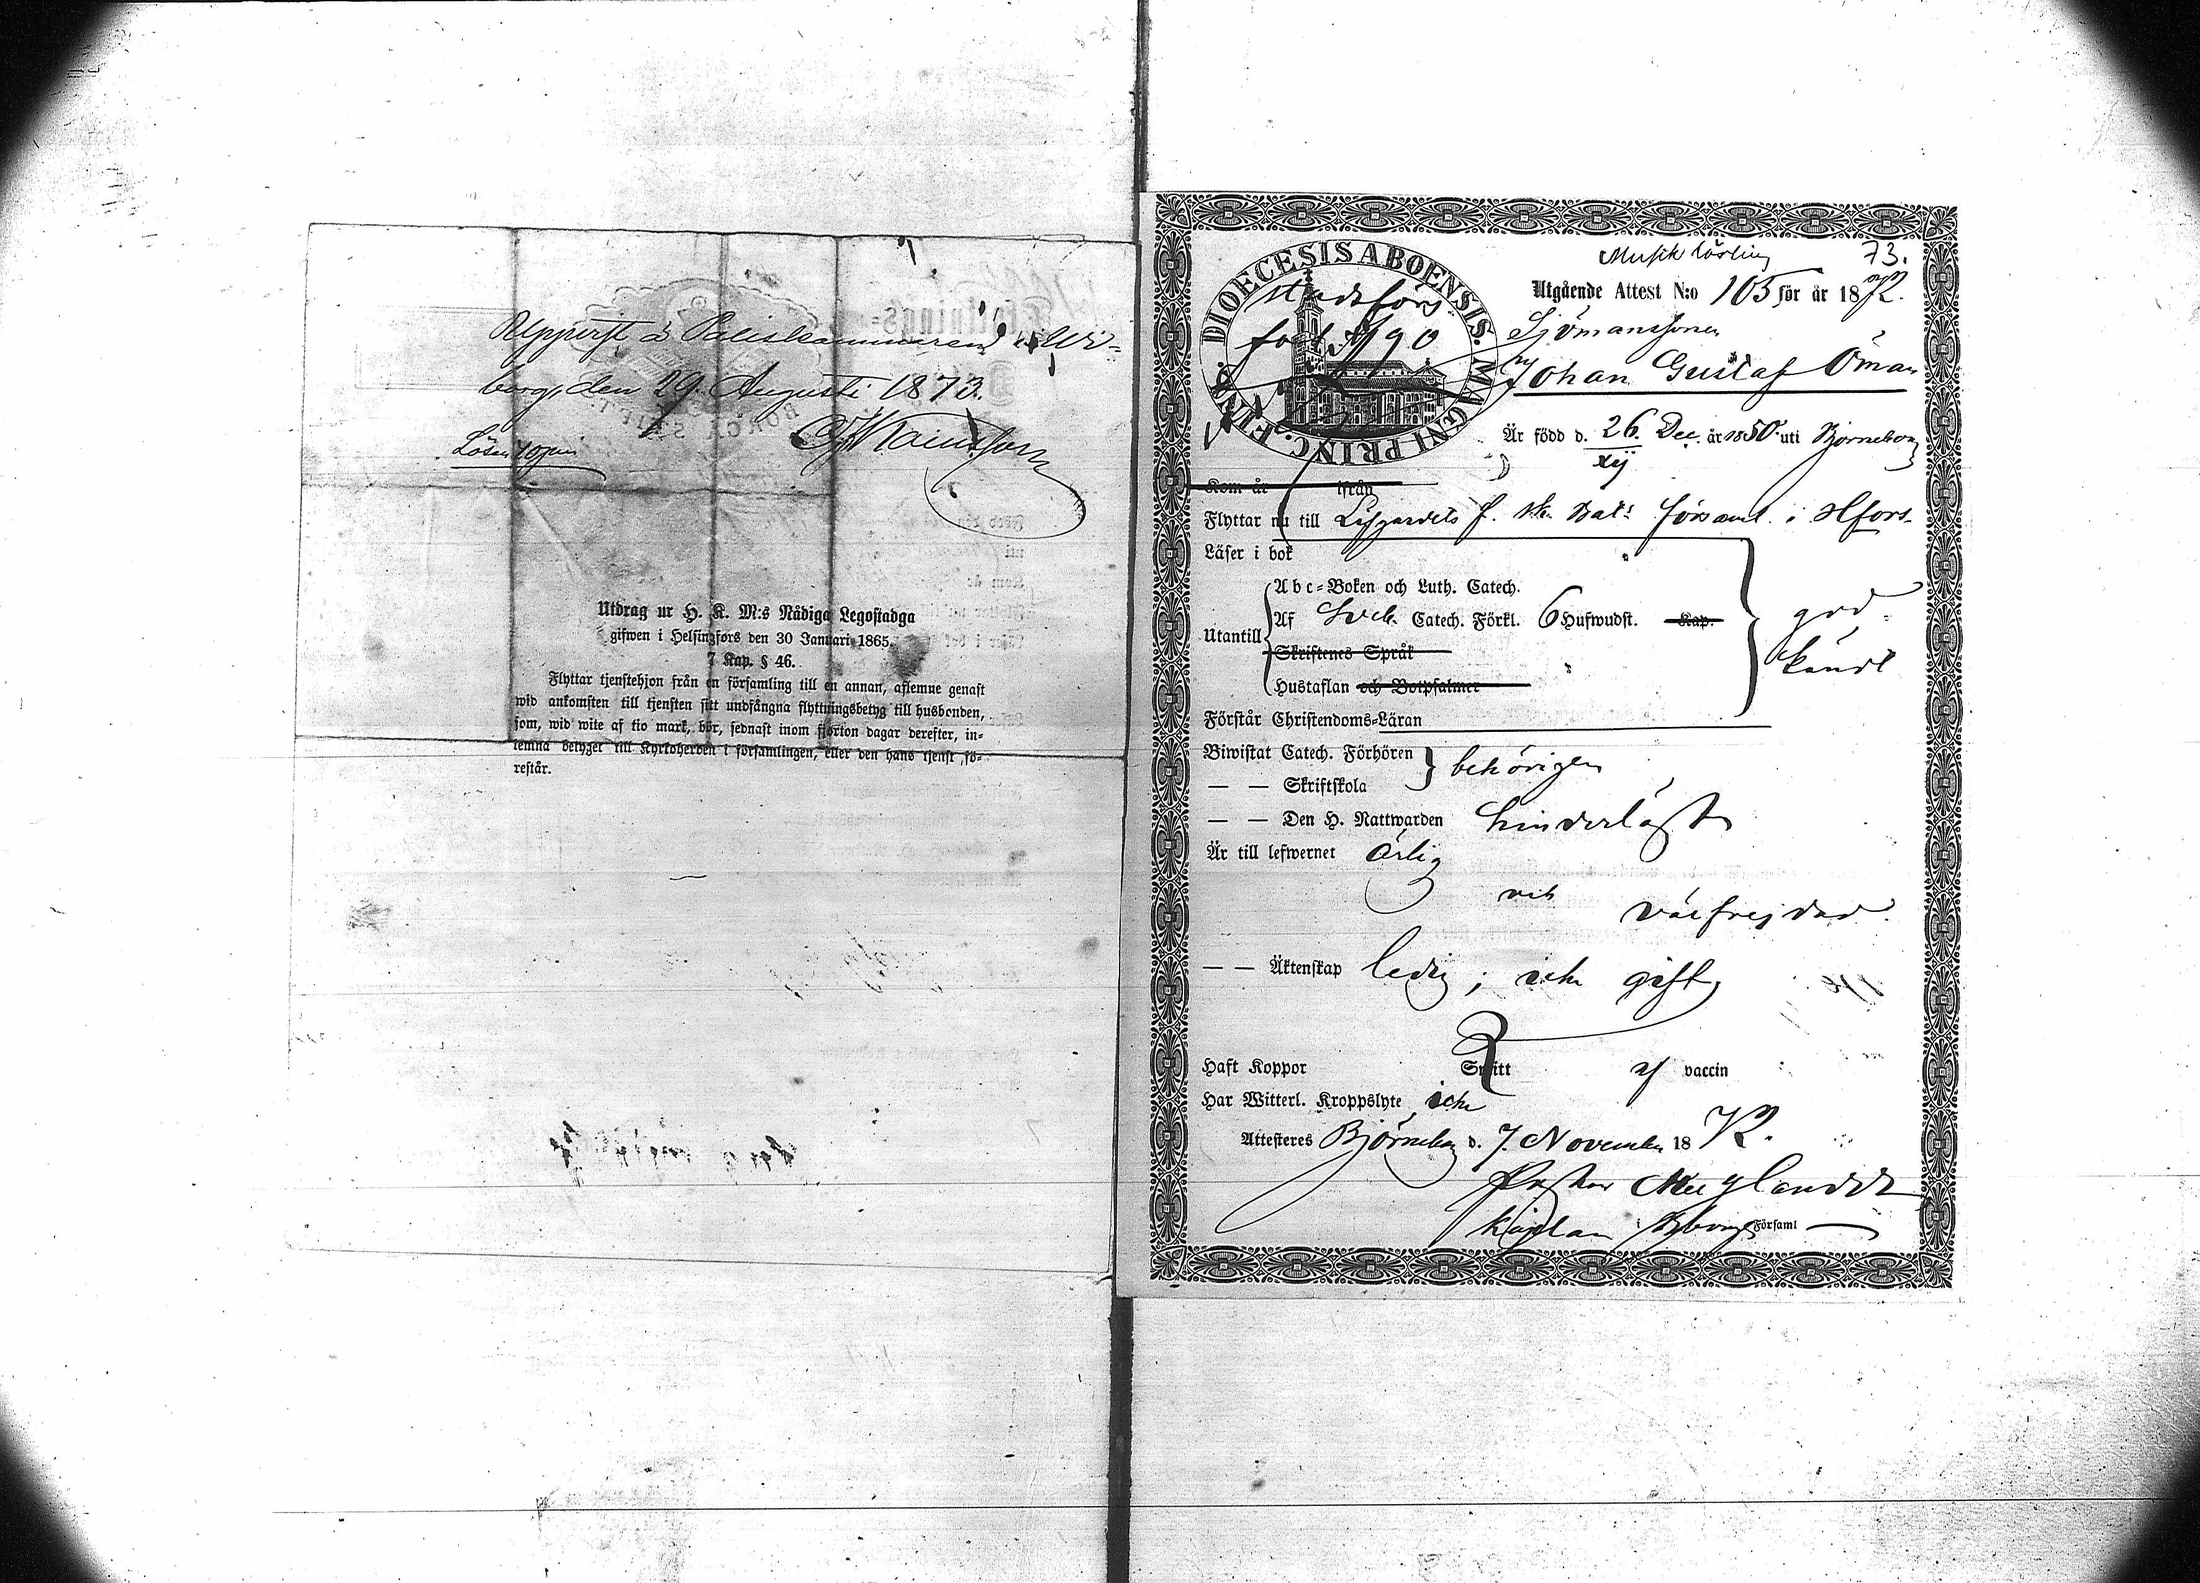 Uppvist å Poliskammaren i Wi-
borg, den 29 Augusti 1873.
Lösen 40 pni
Utdrag ur H. K. M:s Nådiga Legostadga
gifwen i Helsingfors den 30 Januari 1865.
7 Kap. § 46.
Flyttar tjenstehjon från en församling till en annan, aflemne genast
wid ankomsten till tjensten sitt undfångna flyttningsbetyg till husbonden,
som, wid wite af tio mark, bör, sednast inom fjorton dagar derefter, in-
lemna betyget till Kyrkoherden i församlingen, eller den hans tjenst fö-
restår.
Musik lärling 73.
DIOECESIS ABOENSIS. MAGNI PRINC. FINL.
stadsförs.
fol. 190
Utgående Attest N:o 105 för år 1872.
Sjömanssonen
Johan Gustaf Öman
Är född d. 26 Dec. år 1850 uti Björneborg
xij
Kom år ifrån
Flyttar nu till Lifgardets f. sk. Bat:s församl. i Hfors.
Läser i bok
Abc-Boken och Luth. Catech.
Utantill Af Sveb. Catech. Förkl. 6 Hufwudst. Kap.
Skriftenes Språk
Hustaflan och Botpsalmer
god-
känd
Förstår Christendoms-Läran
Biwistat Catech. Förhören behörigen
— — Skriftskola
— — Den H. Nattwarden hinderlöst
Är till lefwernet ärlig
och väl frejdad.
— — Äktenskap ledig; icke gift
Haft Koppor Snitt af vaccin
Har Witterl. Kroppslyte icke
Attesteres Björneborg d. 7. November 1872.
Kaplan i Bborgs Församl